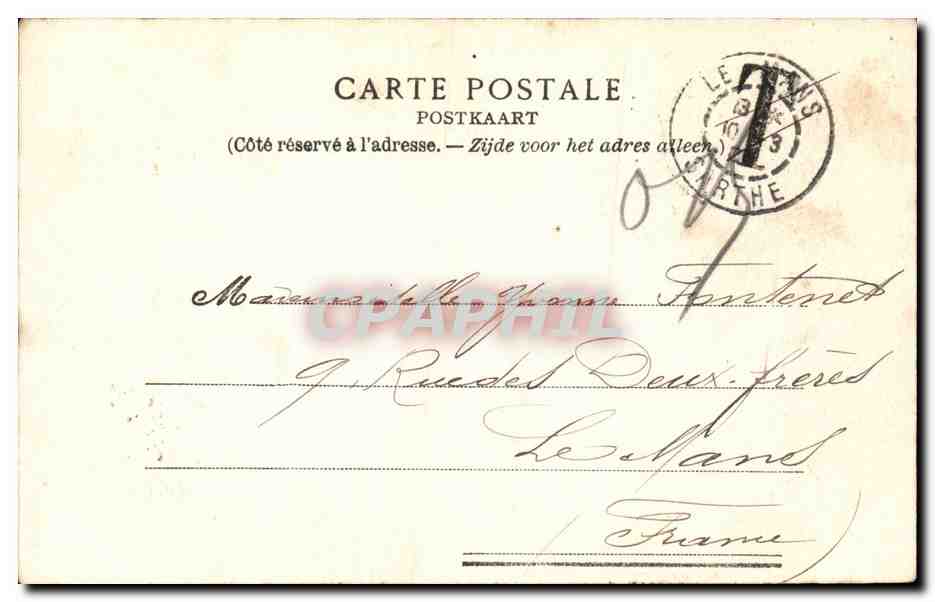 CARTE POSTALE
POSTKAART
(Côté réservé à l'adresse. — Zijde voor het adres alleen.)
LE MANS
T
10
3
SARTHE
Mademoiselle Yvonne Fontenet
CPAPHIL
9, Rue des Deux-frères
Le Mans
(France)